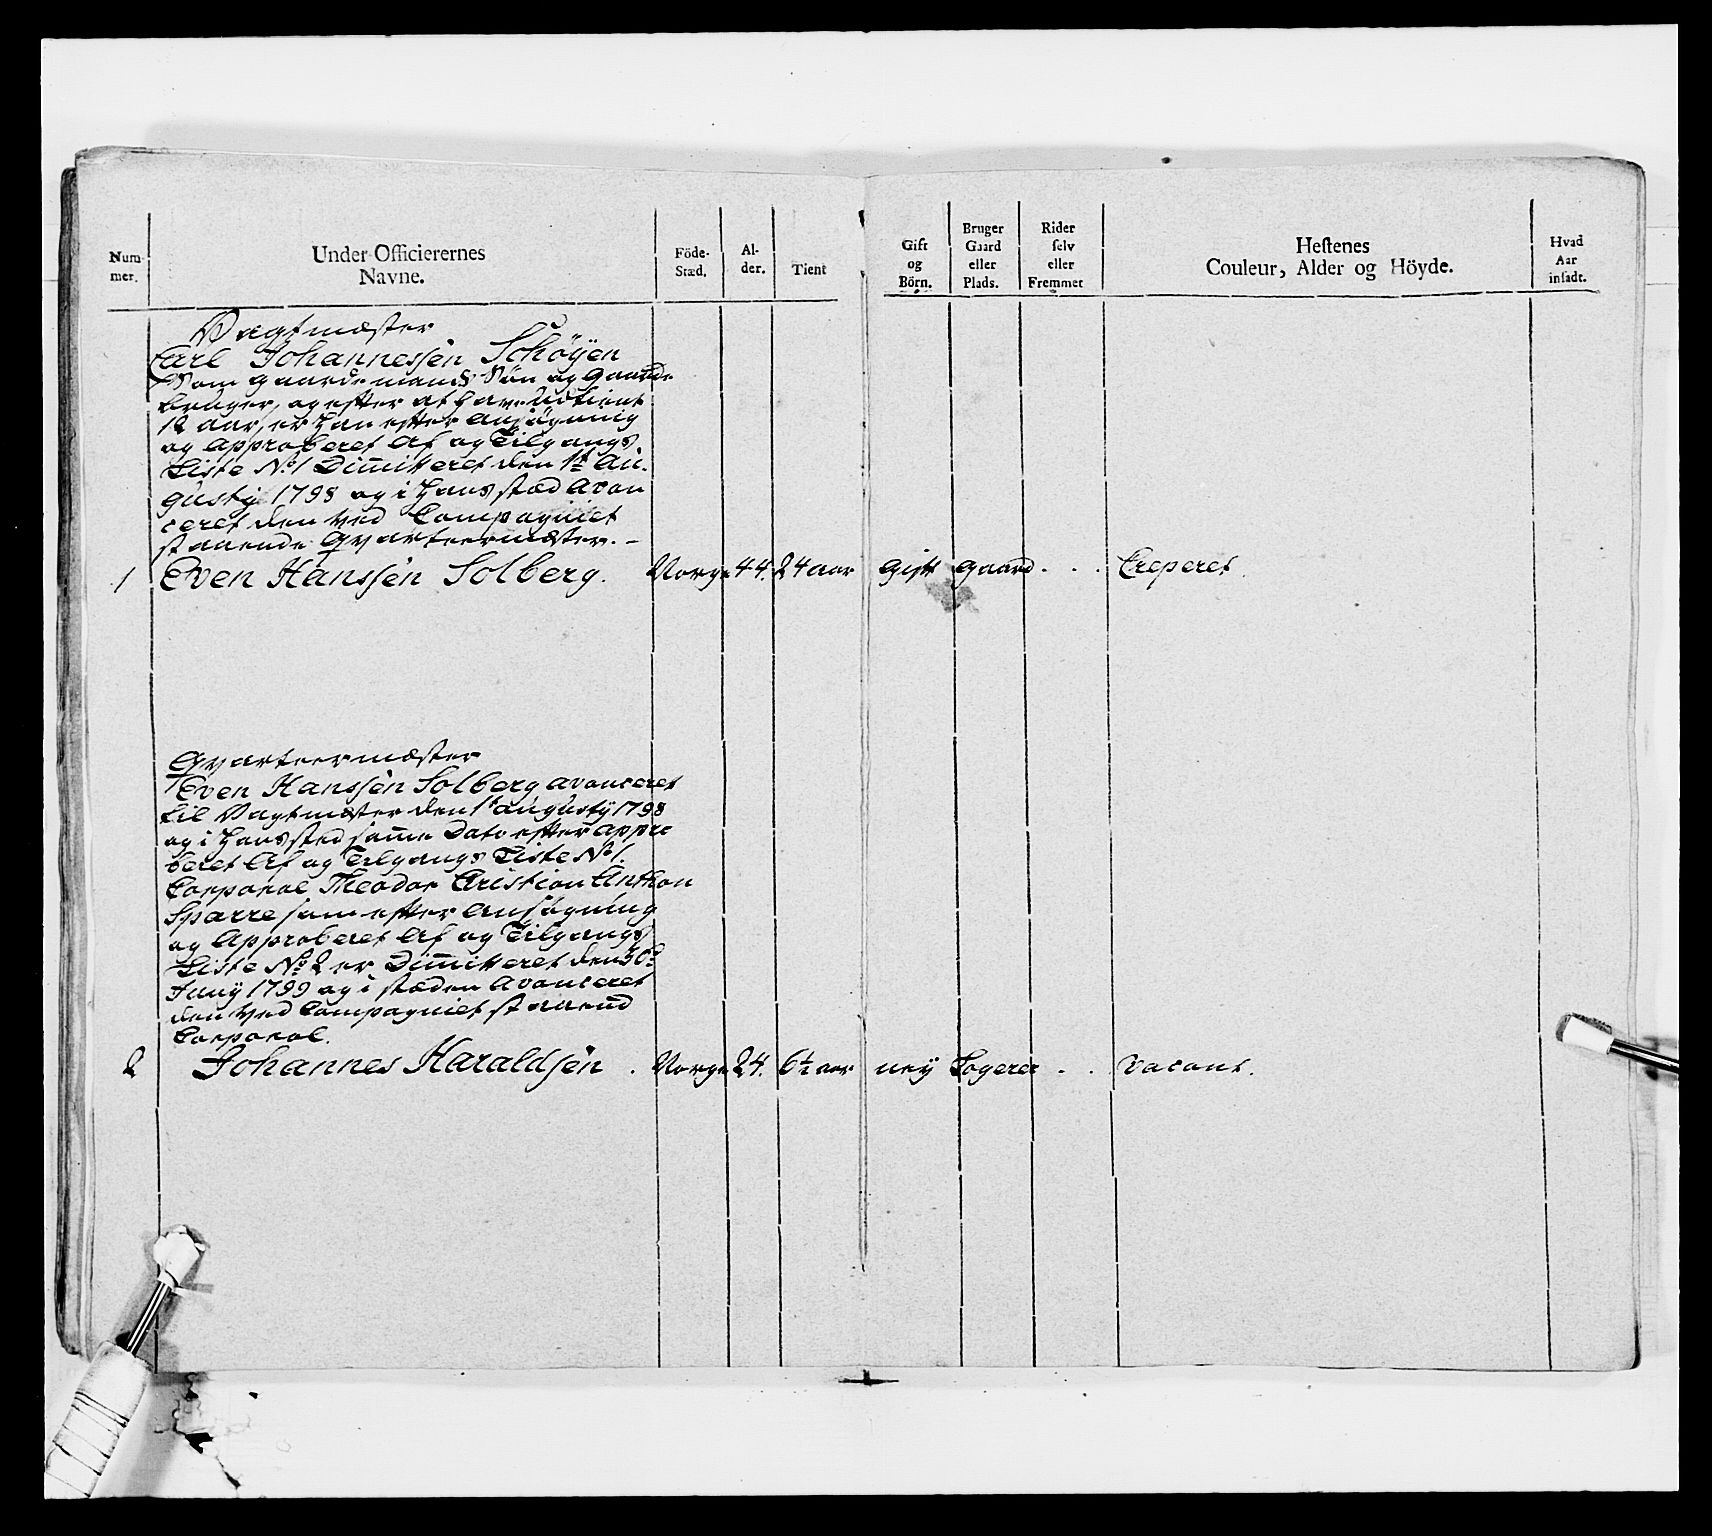 Num-
mer.
Under-Officierernes
Navne.
Föde-
Stæd.
Al-
der.
Tient
Gift
og
Börn.
Bruger
Gaard
eller
Plads.
Rider
selv
eller
Fremmet
Hestenes
Couleur, Alder og Höyde.
Hvad
Aar
insadt.
Vagtmæster
Carl Johannessen Schøyen
Som gaardemands Søn og Gaard
bruger, og efter at have udtient
12 aar, er han efter Ansøgning
og Approberet Af og Tilgangs
Liste No 1 Dimitteret den 1te Au-
gusty 1798 og i hans stæd Avan
ceret den ved Compagniet
staaende Qvarteermæster. -
1 Even Hanssen Solberg. Norge 44. 24 aar Gift Gaard . . . Creperet.
Qvarteermæster
Even Hanssen Solberg avanceret
til Vagtmæster den 1te augusty 1798
og i hans sted samme Dato efter appro
beret Af og Tilgangs Liste No 1.
Corporal Theodor Cristian Anthon
Sparre som efter Ansøgning
og Approberet Af og Tilgangs
Liste No 2 er Dimitteret den 30te
Juny 1799 og i stæden Avanceret
den ved Compagniet staaend
Corporal.
2 Johannes Haraldsen . Norge 24. 6½ aar ney Logerer . . vacant.